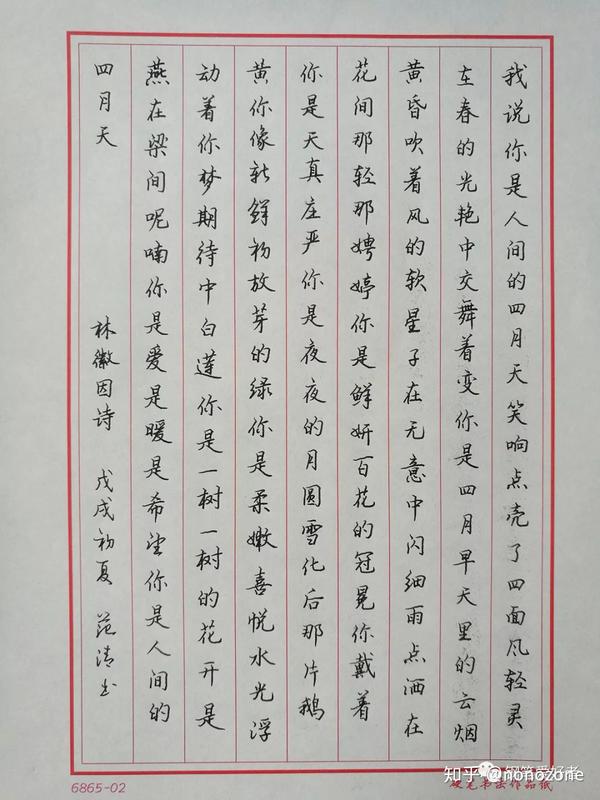 我说你是人间的四月天笑响点亮了四面风轻灵
在春的光艳中交舞着变你是四月早天里的云烟
黄昏吹着风的软星子在无意中闪细雨点洒在
花间那轻那娉婷你是鲜妍百花的冠冕你戴着
你是天真庄严你是夜夜的月圆雪化后那片鹅
黄你像新鲜初放芽的绿你是柔嫩喜悦水光浮
动着你梦期待中白莲你是一树一树的花开是
燕在梁间呢喃你是爱是暖是希望你是人间的
四月天 林徽因诗 戊戌初夏 范清书
6865-02
知乎 @nonozone